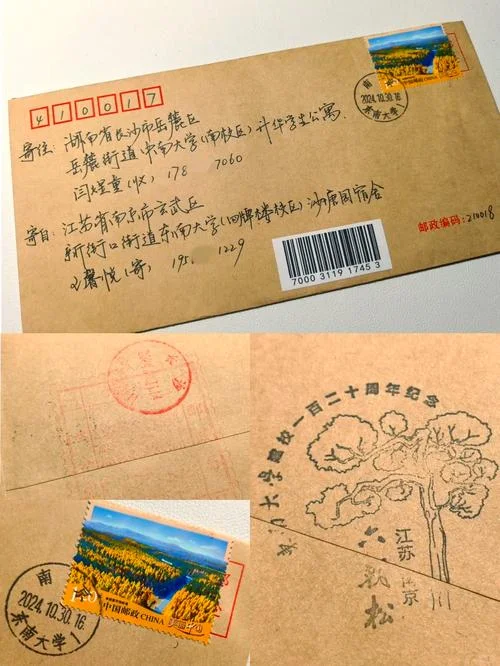 410017
寄往: 湖南省长沙市岳麓区
岳麓街道中南大学(南校区)升华学生公寓
闫煜童(收) 178 7060
寄自: 江苏省南京市玄武区
新街口街道东南大学(四牌楼校区)沙塘园宿舍
馨悦(寄) 195 1229
南京
2024.10.30.16
东南大学1
中国邮政CHINA
7000 3119 1745 3
邮政编码: 210018
东南大学建校一百二十周年纪念
江苏南京
六朝松
南京
2024.10.30.16
东南大学1
中国邮政CHINA